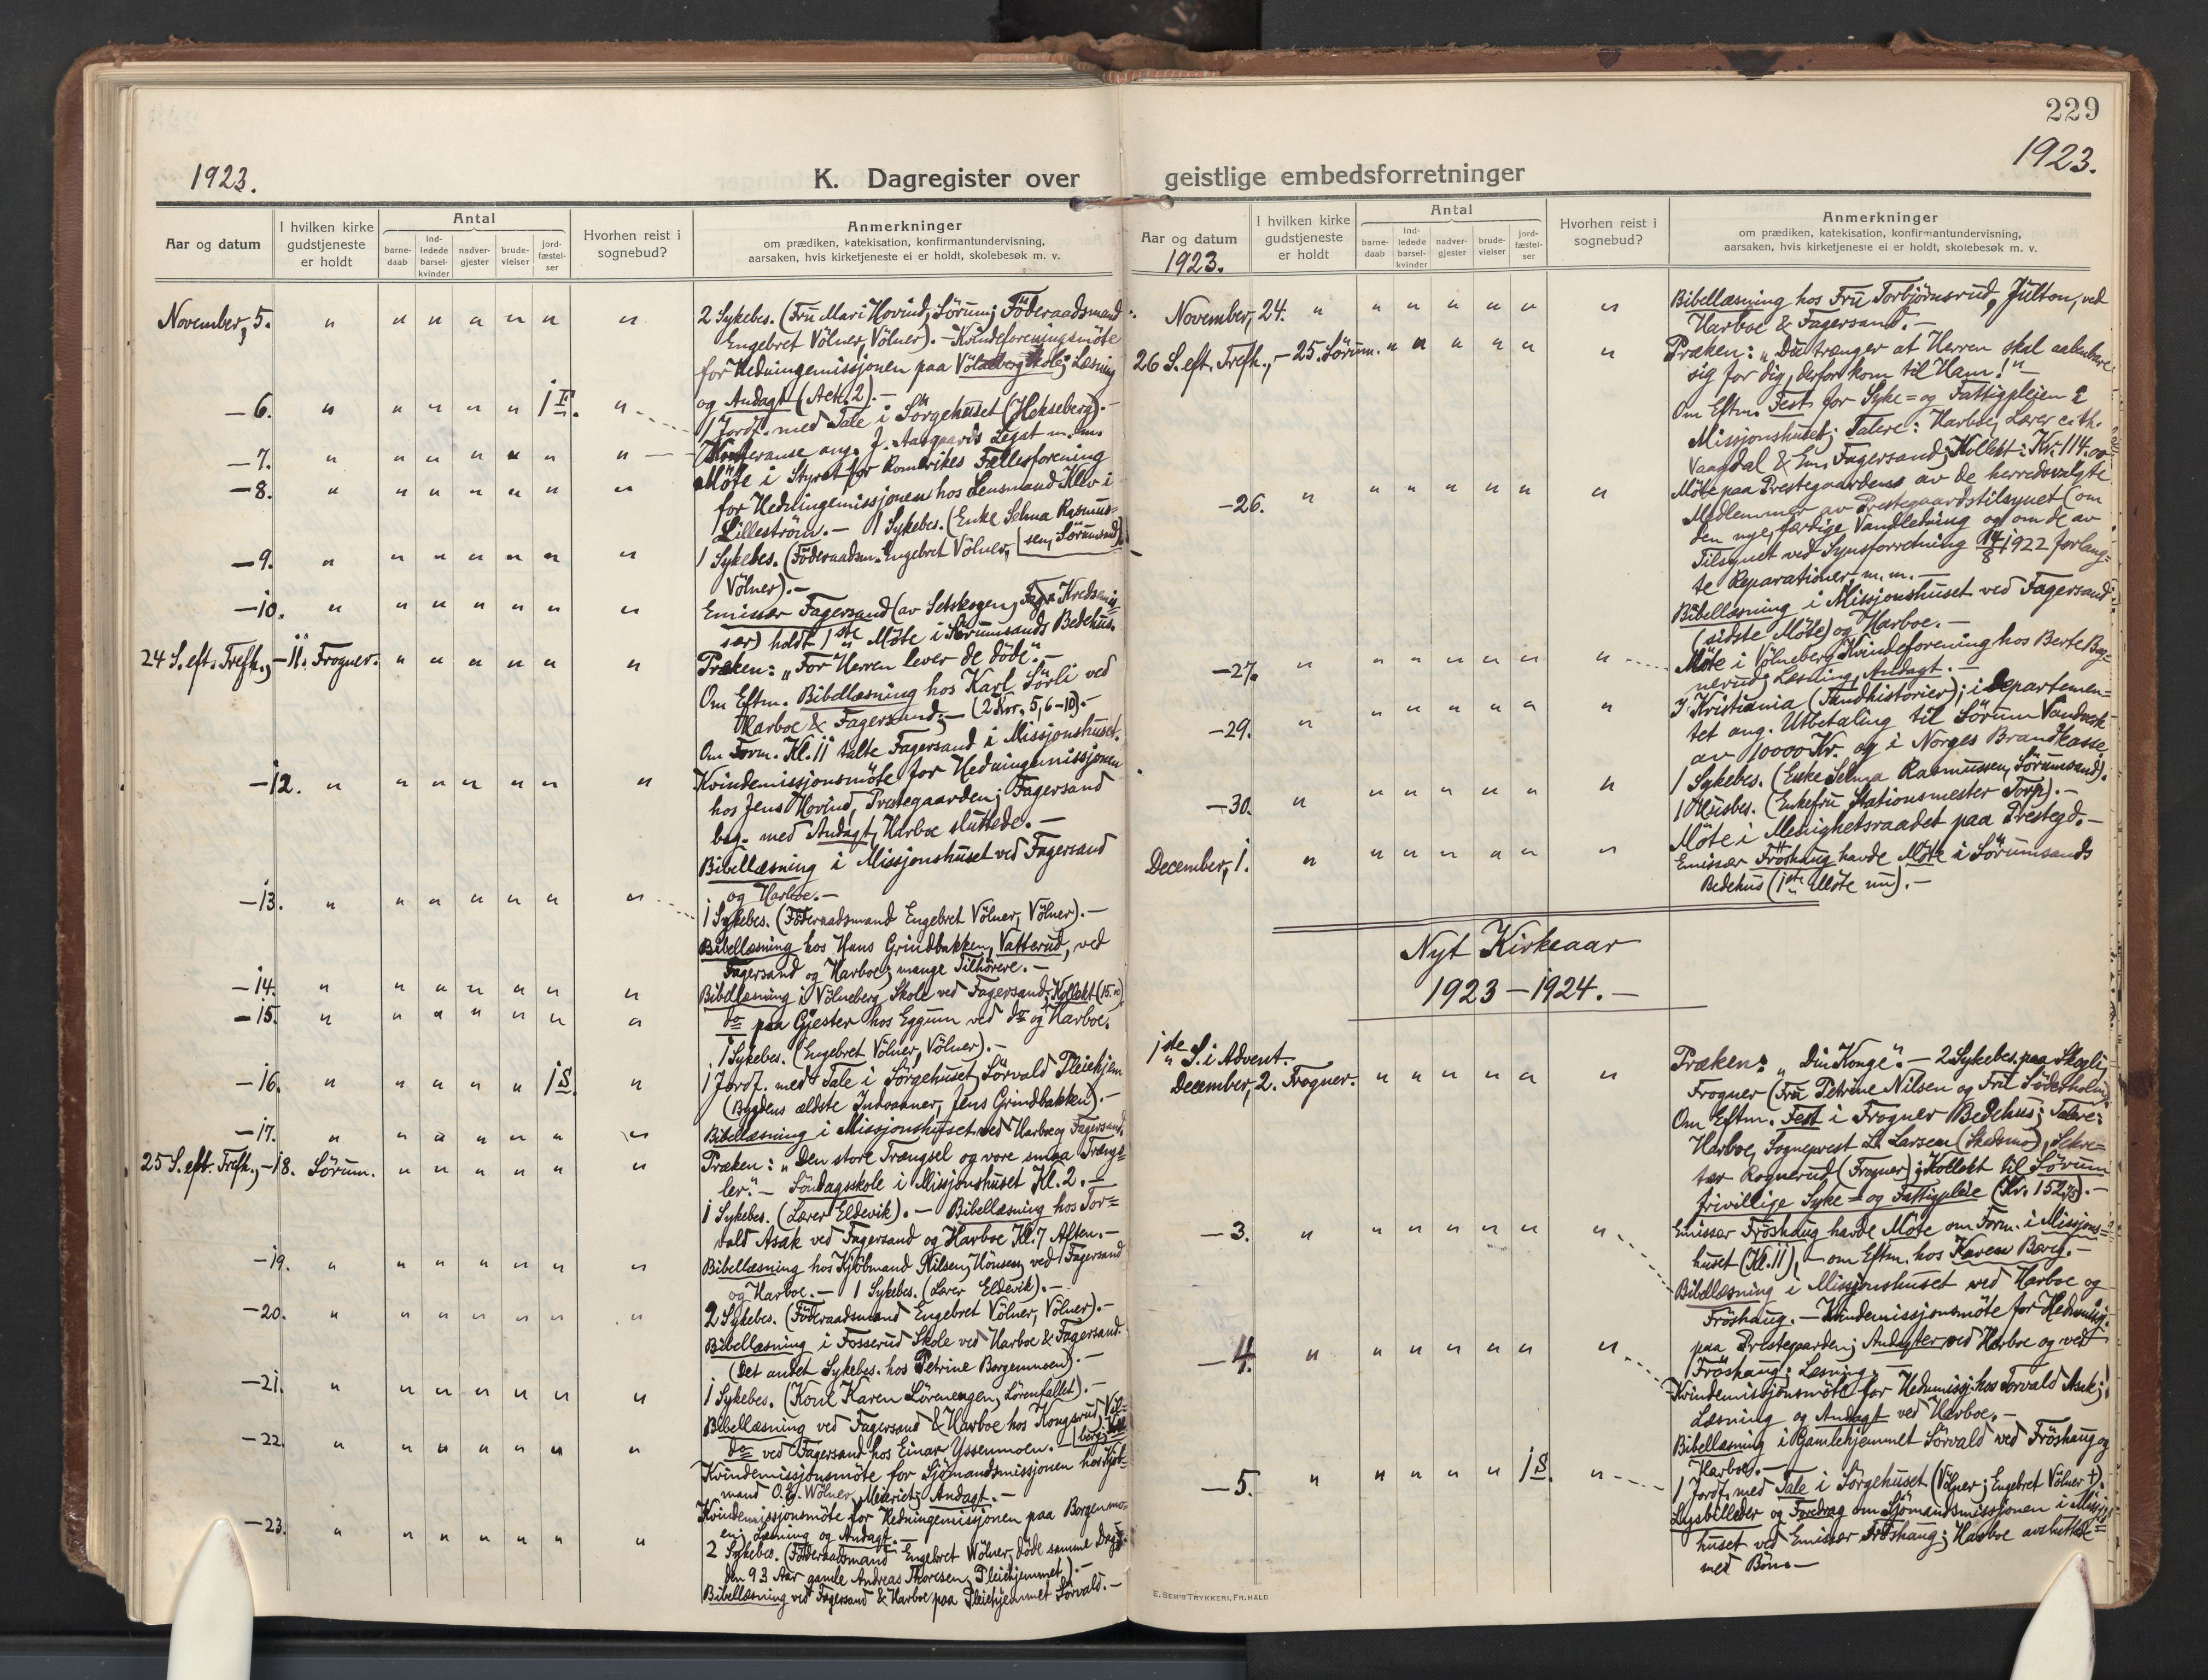 1923.
K. Dagregister over
Aar og datum
I hvilken kirke gudstjeneste er holdt
Antal
barne-daab
ind-ledede barsel-kvinder
nadver-gjester
brude-vielser
jord-fæstel-ser
Hvorhen reist i sognebud?
Anmerkninger
om prædiken, katekisation, konfirmantundervisning,
aarsaken, hvis kirketjeneste ei er holdt, skolebesøk m. v.
November, 5. " " " " " " " 2 Sykebes. (Fru Mari Hovind, Sörum; Föderaadsmand
Engebret Völner, Völner). – Kvindeforeningsmöte
for Hedningemissjonen paa Völneberg Skole; Læsning
og Andagt (Act. 2). –
– 6. " " " " " 1 F. " 1 Jordf. med Tale i Sörgehuset (Hekseberg). –
– 7. " " " " " " " Konferanse ang. J. Aasgaards Legat m. m.
– 8. " " " " " " " Möte i Styret for Romerikes Fællesforening
for Hedningemissjonen hos Lensmand Klev i
Lilleström. – 1 Sykebes. (Enke Selma Rasmus=
sen, Sörumsand).
– 9. " " " " " " " 1 Sykebes. (Föderaadsm. Engebret Völner,
Völner). –
– 10. " " " " " " " Emissær Fagersand (av Setskogen, Kredsemis=
sær) holdt 1ste Möte i Sörumsands Bedehus.
24 S. eft. Trefh., – 11. Frogner. " " " " " " Præken: „For Herren lever de döde". –
Om Eftm. Bibellæsning hos Karl Sörli ved
Harboe & Fagersand. – (2 Kor. 5, 6–10). –
Om Form. Kl. 11 talte Fagersand i Missjonshuset.
– 12. " " " " " " " Kvindemissjonsmöte for Hedningemissjonen
hos Jens Hovind, Prestegaarden; Fagersand
beg. med Andagt, Harboe sluttede. –
Bibellæsning i Missjonshuset ved Fagersand
og Harboe. –
– 13. " " " " " " " 1 Sykebes. (Föderaadsmand Engebret Völner, Völner). –
Bibellæsning hos Hans Grindbakken, Vatterud, ved
Fagersand og Harboe; mange Tilhörere. –
– 14. " " " " " " " Bibellæsning i Völneberg Skole ved Fagersand; Kollekt (15.00)
– 15. " " " " " " " do paa Gjester hos Eggum ved do og Harboe.
1 Sykebes. (Engebret Völner, Völner). –
– 16. " " " " " 1 S. " 1 Jordf. med Tale i Sörgehuset, Sörvald Pleiehjem
(Bygdens ældste Indvaaner, Jens Grindbakken). –
– 17. " " " " " " " Bibellæsning i Missjonshuset ved Harboe og Fagersand.
25 S. eft. Trefh., – 18. Sörum. " " " " " " Præken: „Den store Trængsel og vore smaa Trængs=
ler." – Söndagsskole i Missjonshuset Kl. 2. –
1 Sykebes. (Lærer Eldevik). – Bibellæsning hos Tor=
vald Asak ved Fagersand og Harboe Kl. 7 Aften. –
– 19. " " " " " " " Bibellæsning hos Kjöbmand Nilsen, Hönsen, ved Fagersand
og Harboe. – 1 Sykebes. (Lærer Eldevik). –
– 20. " " " " " " " 2 Sykebes. (Föderaadsmand Engebret Völner, Völner). –
Bibellæsning i Fosserud Skole ved Harboe & Fagersand.
(Det andet Sykebes. hos Petrine Borgenmoen). –
– 21. " " " " " " " 1 Sykebes. (Kone Karen Lörenengen, Lörenfallet). –
Bibellæsning ved Fagersand & Harboe hos Kongsrud,
– 22. " " " " " " " do ved Fagersand hos Einar Yssenmoen. –
Kvindemissjonsmöte for Sjömandsmissjonen hos Kjöb=
mand O. E. Wölner, Meieriet; Andagt. –
– 23. " " " " " " " Kvindemissjonsmöte for Hedningemissjonen paa Borgenmo=
en; Læsning og Andagt. –
2 Sykebes. (Föderaadsmand Engebret Wölner, döde samme Dag;
den 93 Aar gamle Andreas Thoresen, Pleiehjemmet). –
Bibellæsning ved Fagersand & Harboe paa Pleiehjemmet Sörvald. –
229
1923.
geistlige embedsforretninger
Aar og datum
1923.
I hvilken kirke gudstjeneste er holdt
Antal
barne-daab
ind-ledede barsel-kvinder
nadver-gjester
brude-vielser
jord-fæstel-ser
Hvorhen reist i sognebud?
Anmerkninger
om prædiken, katekisation, konfirmantundervisning,
aarsaken, hvis kirketjeneste ei er holdt, skolebesøk m. v.
November, 24. " " " " " " " Bibellæsning hos Fru Torbjörnsrud, Julton, ved
Harboe & Fagersand. –
26 S. eft. Trefh., – 25. Sörum. " " " " " " Præken: „Du trænger at Herren skal aabenbare
sig for dig, derfor kom til Ham!" –
Om Eftm. Fest for Syke= og Fattigpleien i
Missjonshuset; Talere: Harboe, Lærer
Vaagdal & Em. Fagersand; Kollekt: Kr. 114.00
– 26. " " " " " " " Möte paa Prestegaarden av de herredsvalgte
Medlemmer av Prestegaardstilsynet (om
den nye, færdige Vandledning og om de av
Tilsynet ved Synsforretning 14/8 1922 forlang=
te Reparationer, m. m. –
Bibellæsning i Missjonshuset ved Fagersand
(sidste Möte) og Harboe. –
– 27. " " " " " " " Möte i Völneberg Kvindeforening hos Berte
nerud; Læsning, Andagt. –
– 29. " " " " " " " I Kristiania (Tandhistorier); i Departemen=
tet ang. Utbetaling til Sörum Vandverk
av 10000 Kr. og i Norges Brandkasse.
– 30. " " " " " " " 1 Sykebes. (Enke Selma Rasmussen, Sörumsand).
1 Husbes. (Enkefru Stationsmester Torp). –
Möte i Menighetsraadet paa Prestegd. –
December, 1. " " " " " " " Emissær Fröshaug havde Möte i Sörumsands
Bedehus (1ste Möte nu). –
Nyt Kirkeaar
1923 – 1924. –
1ste S. i Advent.
December, 2. Frogner. " " " " " " Præken: „Din Konge". – 2 Sykebes. paa Skogli,
Frogner (Fru Petrine Nilsen og Fru Söderholm).
Om Eftm. Fest i Frogner Bedehus; Talere:
Harboe, Sogneprest L. Larsen (Skedsmo), Sekre=
tær Rognerud (Frogner); Kollekt til Sörum
frivillige Syke= og Fattigpleie (Kr. 152,75). –
– 3. " " " " " " " Emissær Fröshaug havde Möte om Form. i Missjons=
huset (Kl. 11), – om Eftm. hos Karen Berg. –
Bibellæsning i Missjonshuset ved Harboe og
Fröshaug. – Kvindemissjonsmöte for Hedn.missj.
paa Prestegaarden; Andagter ved Harboe og ved
Fröshaug; Læsning. –
– 4. " " " " " " " Kvindemissjonsmöte for Hedn.missj. hos Torvald Asak;
Læsning og Andagt ved Harboe. –
Bibellæsning i Gamlehjemmet Sörvald ved Fröshaug og
Harboe. –
– 5. " " " " " 1 S. " 1 Jordf. med Tale i Sörgehuset (Völner; Engebret Völner †).
Lysbilleder og Foredrag om Sjömandsmissjonen i Missj.=
huset ved Emissær Fröshaug; Harboe avsluttede
med Bön. –
E. SEM'S TRYKKERI, FR.HALD